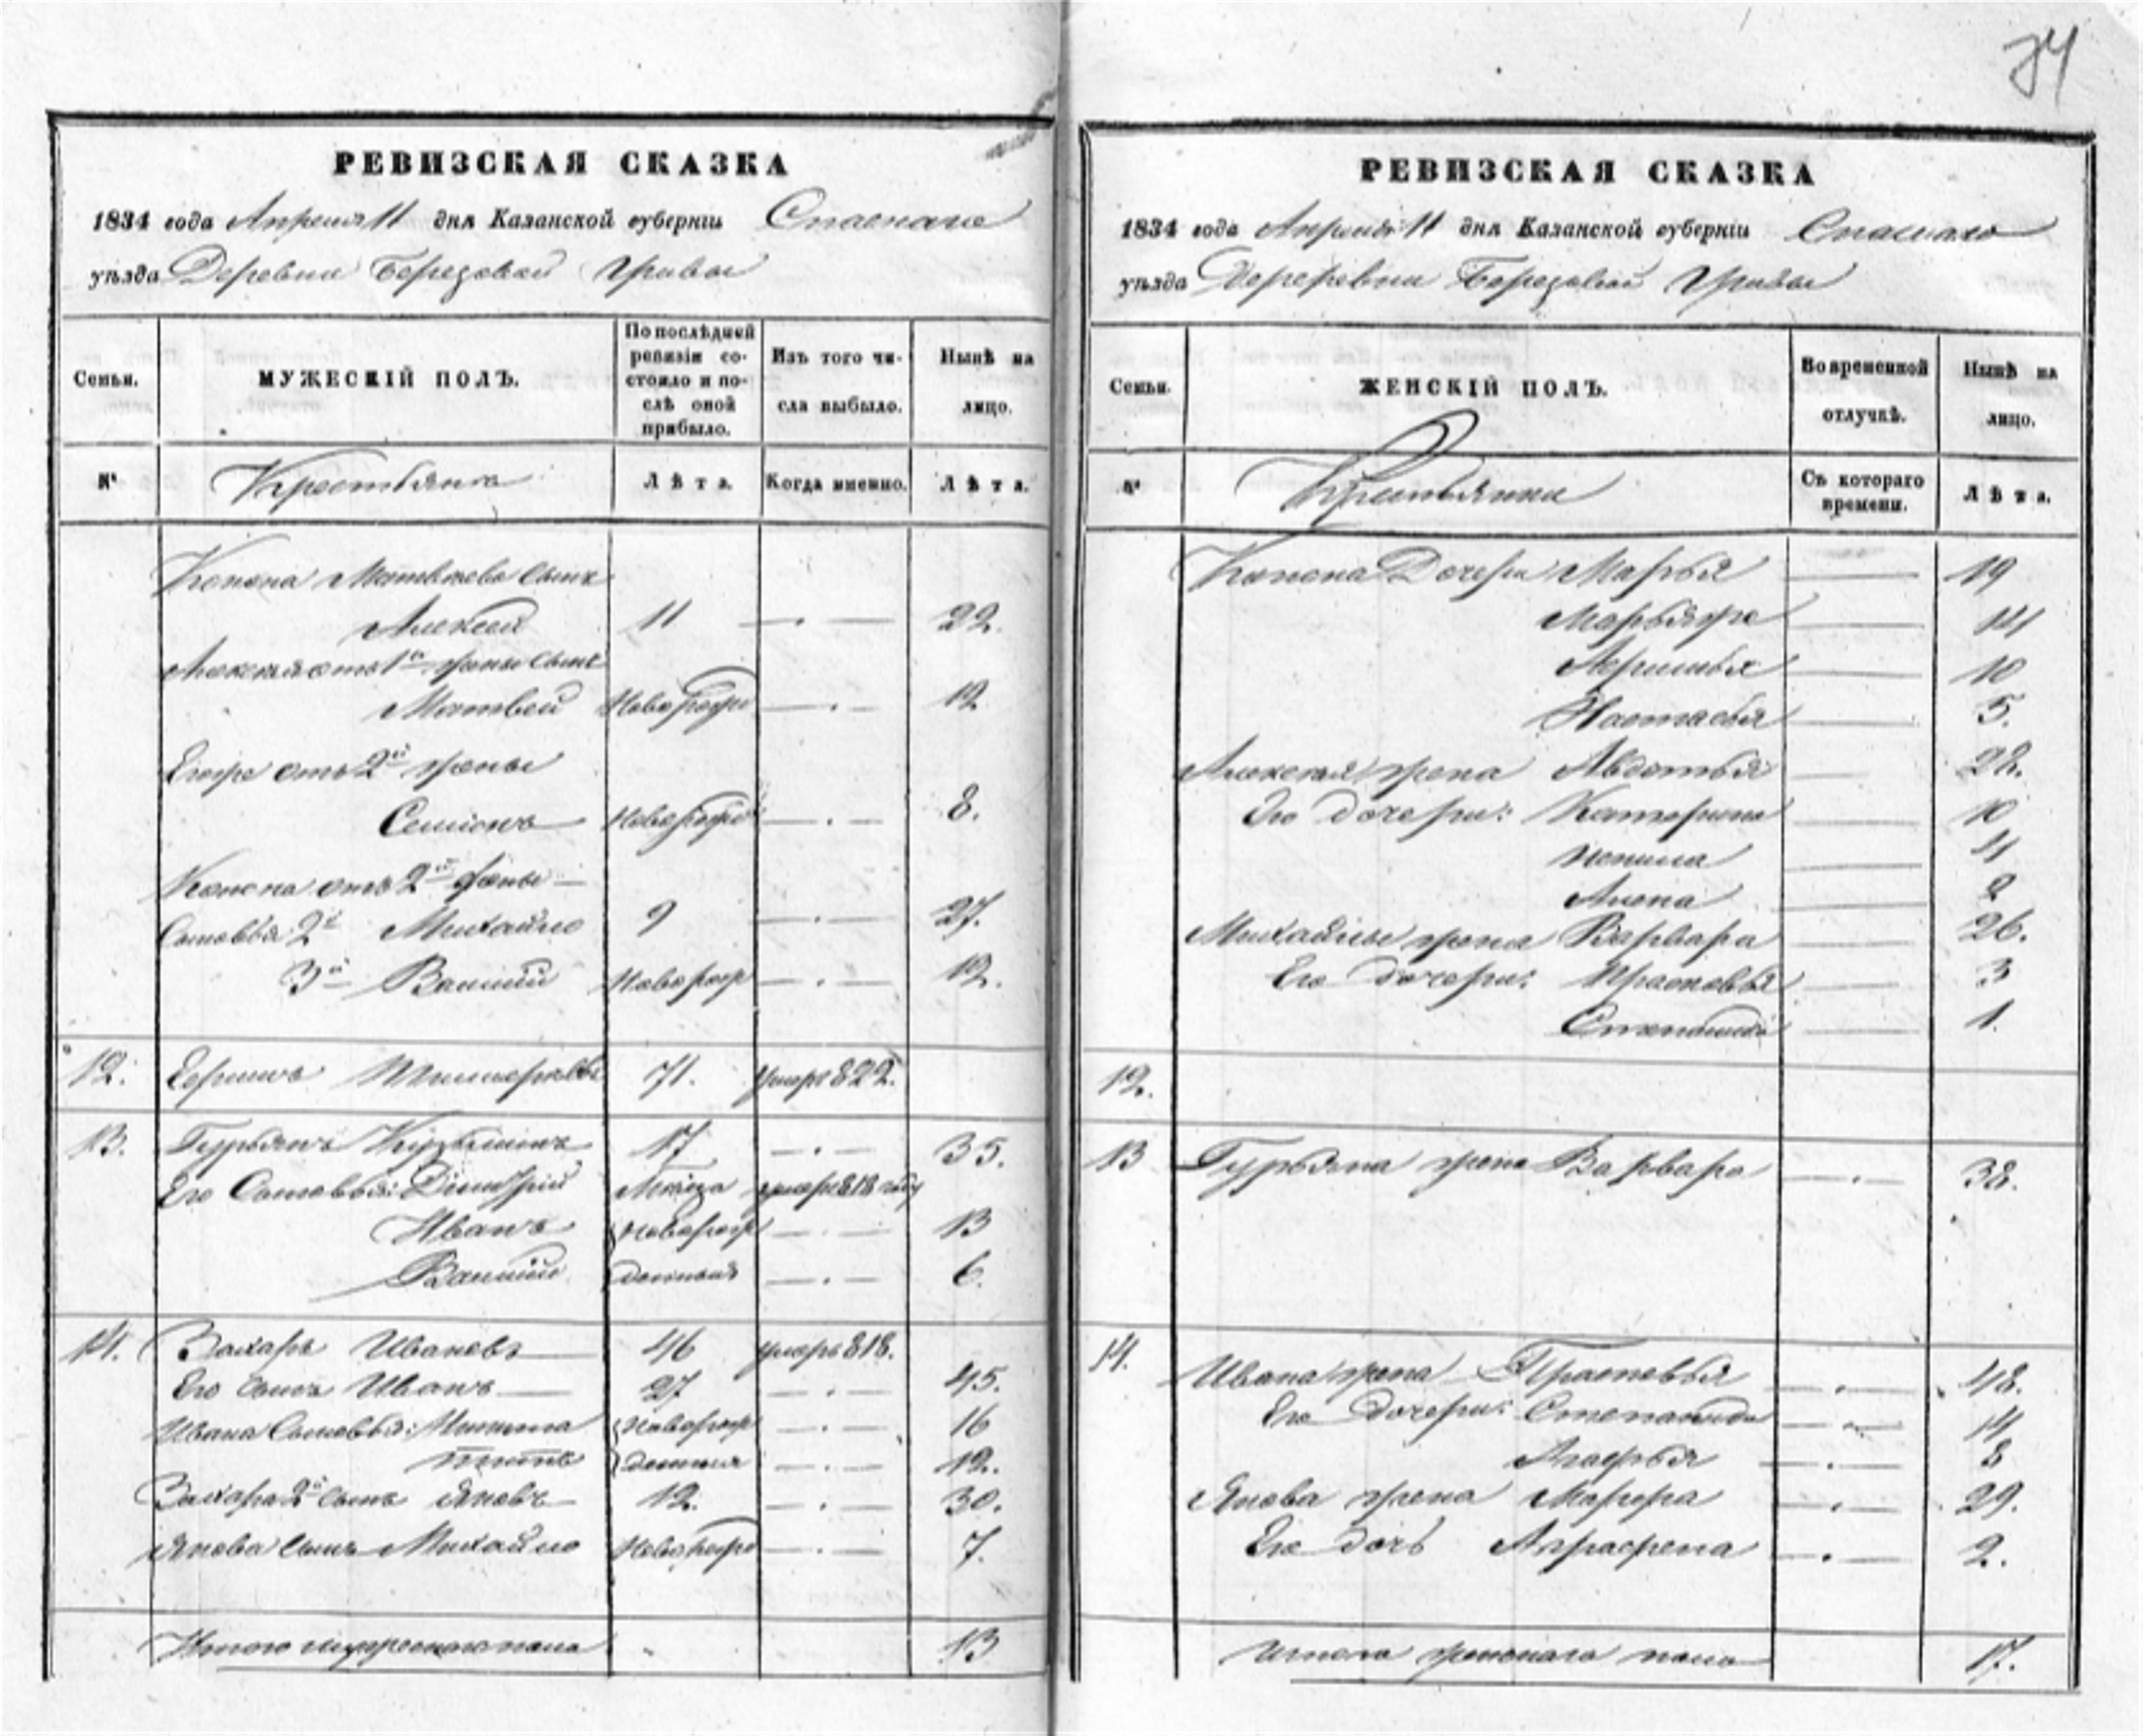 74
РЕВИЗСКАЯ СКАЗКА
1834 года Апреля 11 дня Казанской губерніи Спаскаго
уѣзда Деревни Березовой Гривы
Семьи.
МУЖЕСКІЙ ПОЛЪ.
По послѣдней ревизіи состояло и послѣ оной прибыло.
Изъ того числа выбыло.
Нынѣ на лицо.
№
Крестьяне
Лѣта.
Когда именно.
Лѣта.
Конона Матвѣева сынъ
Алексей 11 22.
Алексея отъ 1й жены сынъ
Матвей Новорож 12
Егоже отъ 2й жены
Семіонъ Новорож 8.
Конона отъ 2й жены
Сыновья 2й Михайло 9 27.
3й Василій Новорож 12.
12. 71. умеръ 822.
13. Гурьянъ Кузьминъ 17 35.
Его Сыновья: Димитрій умеръ 818 году
Иванъ Новорож 13
Василій денныя 6.
14. Захаръ Ивановъ 46 умеръ 818.
Его сынъ Иванъ 27 45.
Ивана Сыновья: Никита Новорож 16
Титъ денныя 12.
Захара 2й сынъ Яковъ 12. 30.
Якова сынъ Михайло Новорож 7.
Итого мужескаго пола 13
РЕВИЗСКАЯ СКАЗКА
1834 года Апреля 11 дня Казанской губерніи Спаскаго
уѣзда Дереревни Березовой Гривы
Семьи.
ЖЕНСКІЙ ПОЛЪ.
Во временной отлучкѣ.
Нынѣ на лицо.
№
Крестьянки
Съ котораго времени.
Лѣта.
Конона Дочери Марья 19
14
10
Настасья 5.
Алексея жена Авдотья 28.
Его дочери: Катерина 10
Алена
Михайлы жена Варвара 26.
Его дочери: Прасковья 3
Степанида 1.
12.
13 Гурьяна жена Варвара 38.
14. Ивана жена Прасковья 48.
Его дочери: Степанида
Агафья 8
Якова жена Марфа 29.
Его дочь Аграфена 2.
Итого женскаго пола 17.